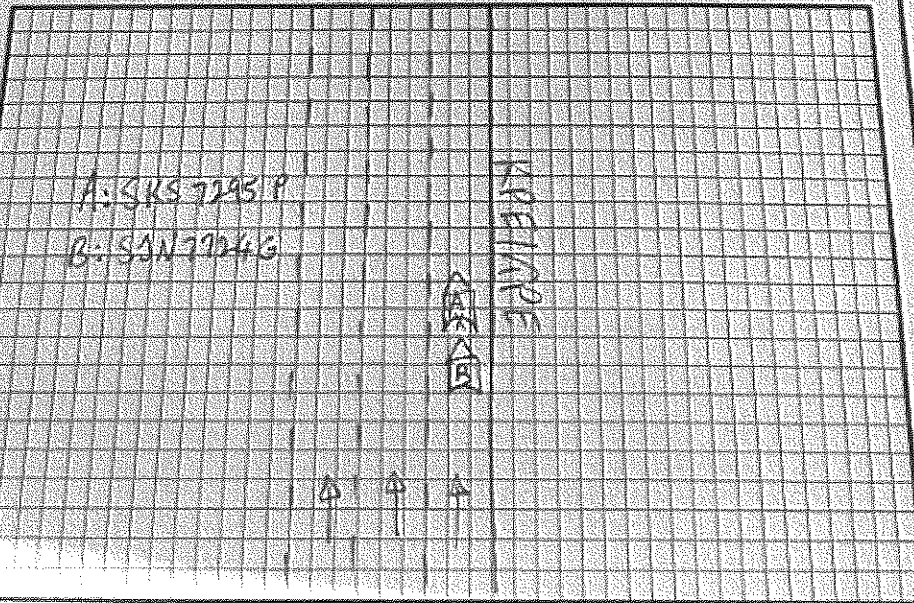 A: SKS 7295 P
B: SJN 7724G
KPE/APE
A
B